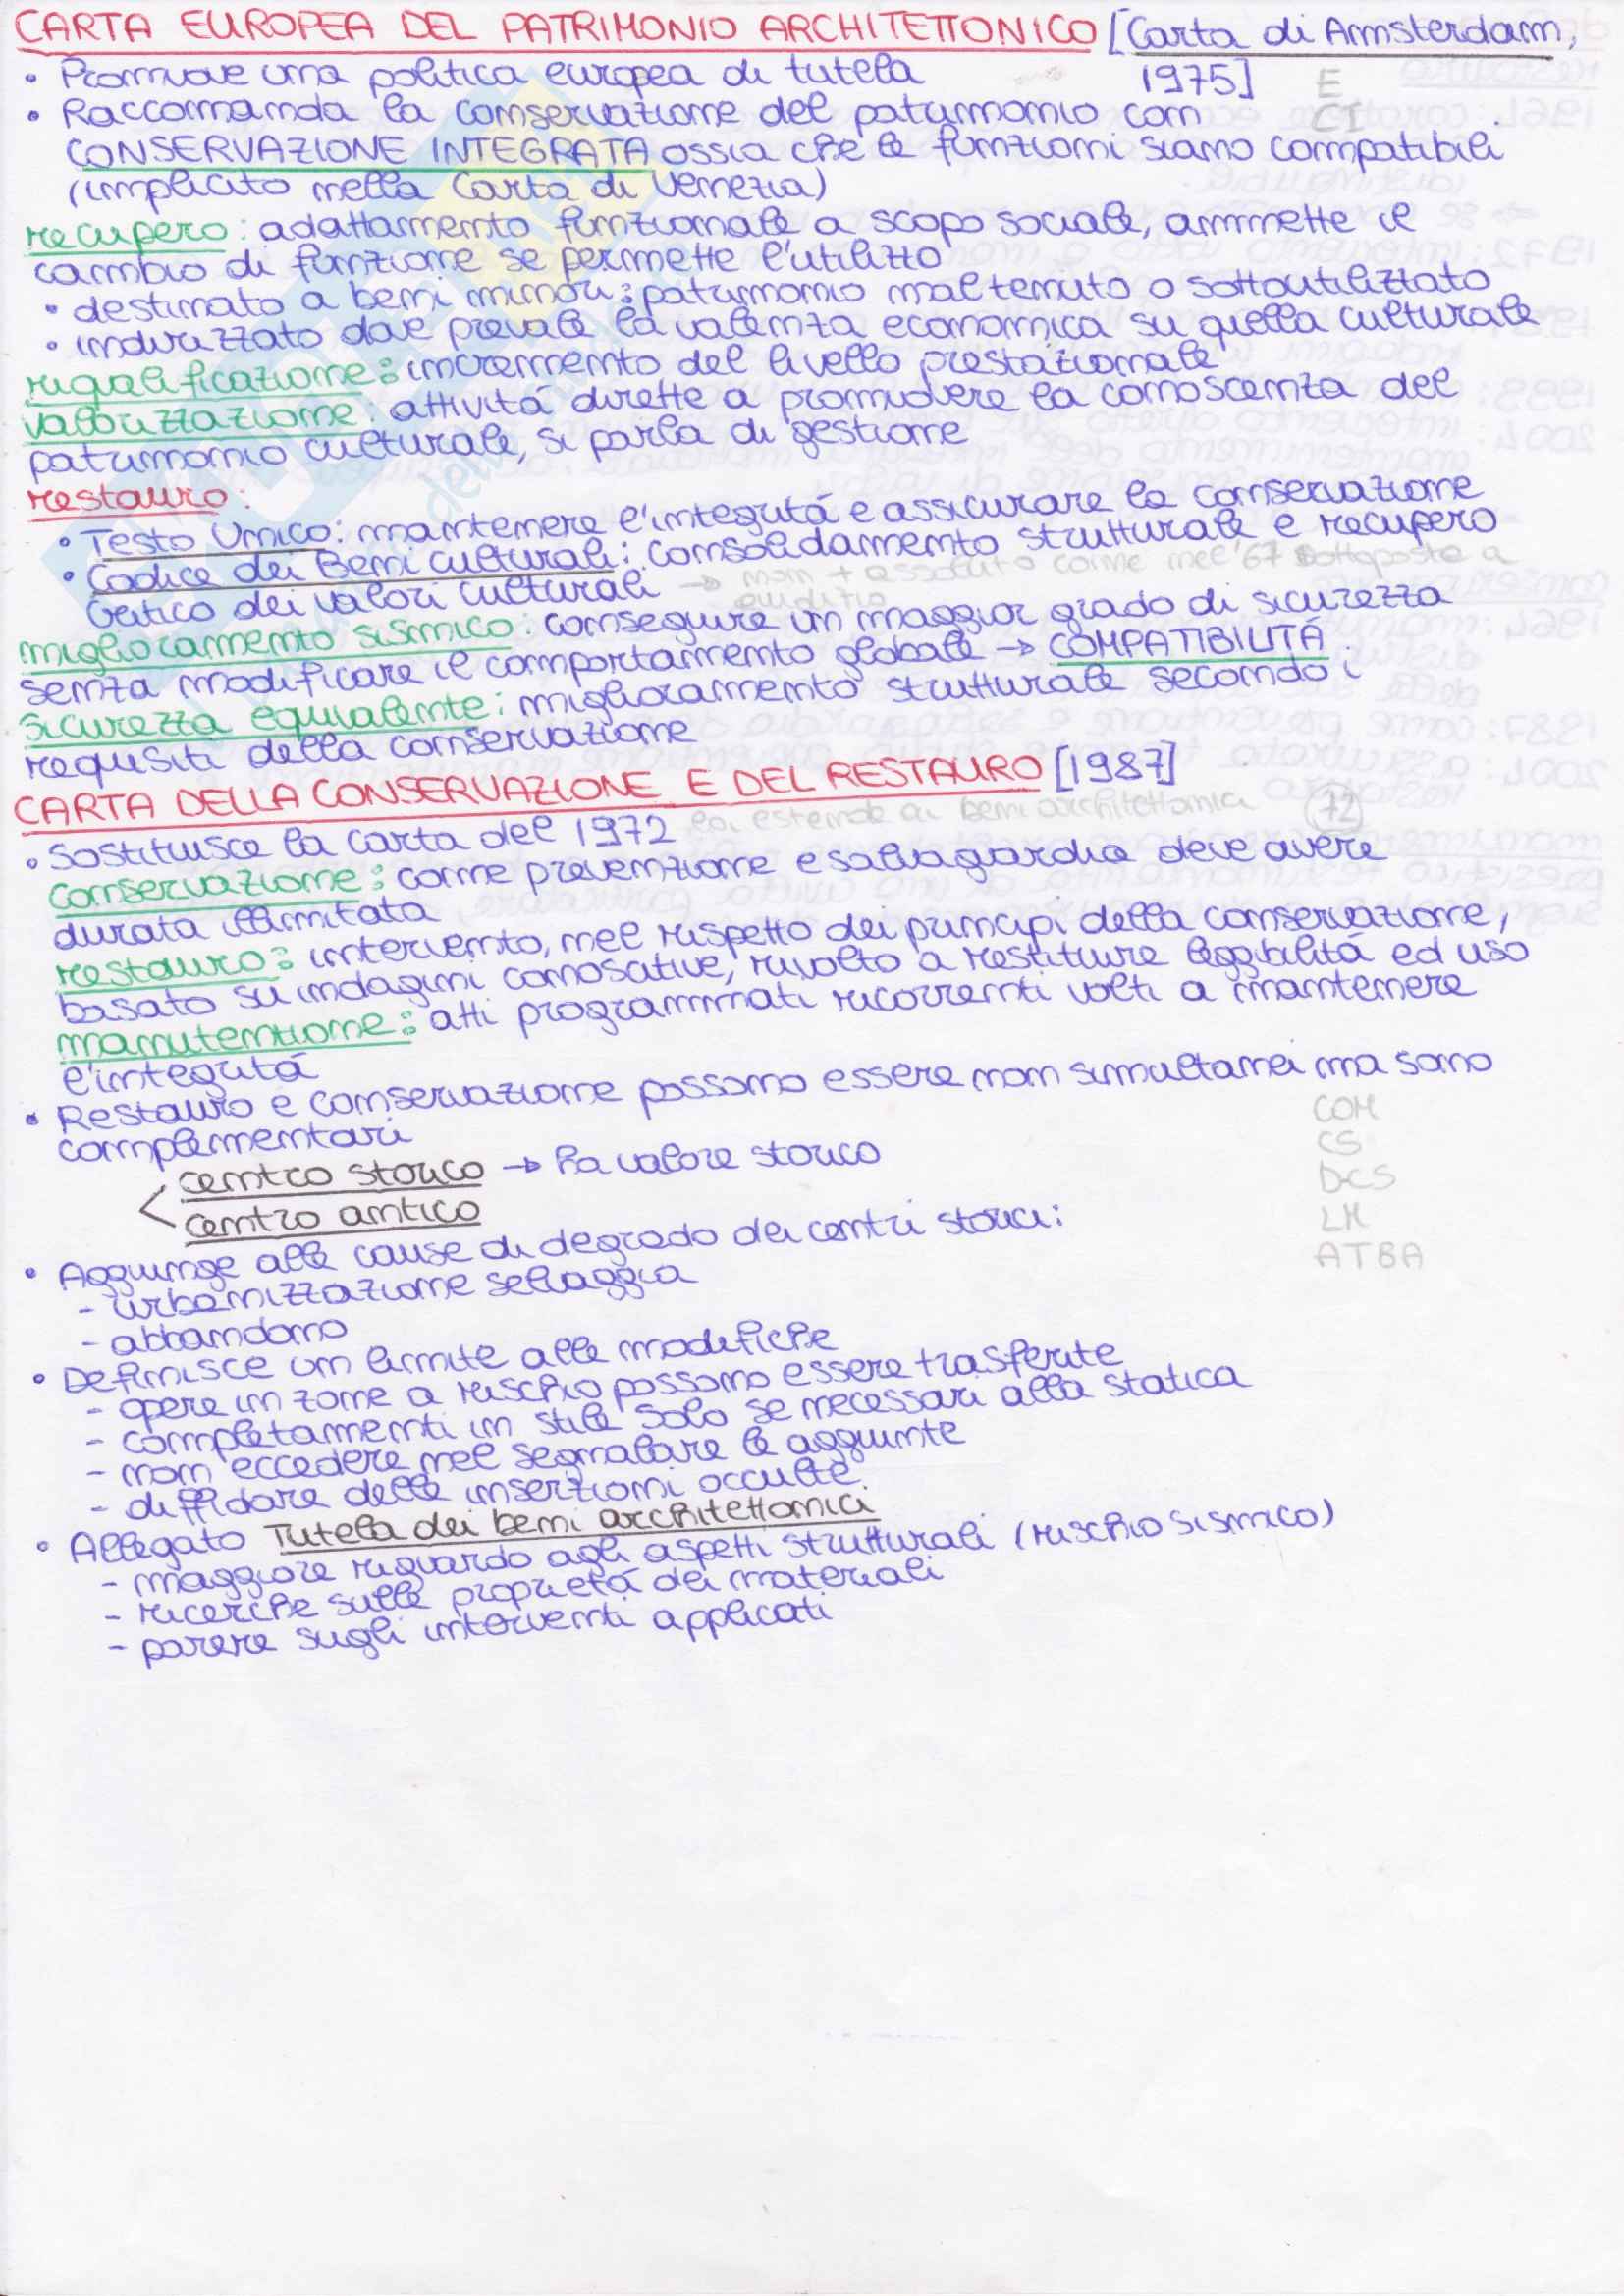 CARTA EUROPEA DEL PATRIMONIO ARCHITETTONICO [Carta di Amsterdam,
• Promuove una politica europea di tutela 1975] E
• Raccomanda la conservazione del patrimonio con CI
CONSERVAZIONE INTEGRATA ossia che le funzioni siano compatibili
(implicito nella Carta di Venezia)
recupero: adattamento funzionale a scopo sociale, ammette il
cambio di funzione se permette l'utilizzo
• destinato a beni minori: patrimonio mal tenuto o sottoutilizzato
• indirizzato dove prevale la valenza economica su quella culturale
riqualificazione: incremento del livello prestazionale
valorizzazione: attivitá dirette a promuovere la conoscenza del
patrimonio culturale, si parla di gestione
restauro:
• Testo Unico: mantenere l'integritá e assicurare la conservazione
• Codice dei Beni culturali: consolidamento strutturale e recupero
critico dei valori culturali → non + assoluto come nel '67 sottoposto a
giudizio
miglioramento sismico: conseguire un maggior grado di sicurezza
senza modificare il comportamento globale → COMPATIBILITÁ
sicurezza equivalente: miglioramento strutturale secondo i
requisiti della conservazione
CARTA DELLA CONSERVAZIONE E DEL RESTAURO [1987]
• Sostituisce la carta del 1972 la estende ai beni architettonici 72
conservazione: come prevenzione e salvaguardia deve avere
durata illimitata
restauro: intervento, nel rispetto dei principi della conservazione,
basato su indagini conoscative, rivolto a restituire leggibilitá ed uso
manutenzione: atti programmati ricorrenti volti a mantenere
l'integritá
• Restauro e conservazione possono essere non simultanei ma sono
complementari COM
centro storico → ha valore storico CS
DCS
centro antico LM
• Aggiunge alle cause di degrado dei centri storici: ATBA
- urbanizzazione selvaggia
- abbandono
• Definisce un limite alle modifiche
- opere in zone a rischio possono essere trasferite
- completamenti in stile solo se necessari alla statica
- non eccedere nel segnalare le aggiunte
- diffidare delle inserzioni occulte
• Allegato Tutela dei beni architettonici
- maggiore riguardo agli aspetti strutturali (rischio sismico)
- ricerche sulle proprietá dei materiali
- parere sugli interventi applicati